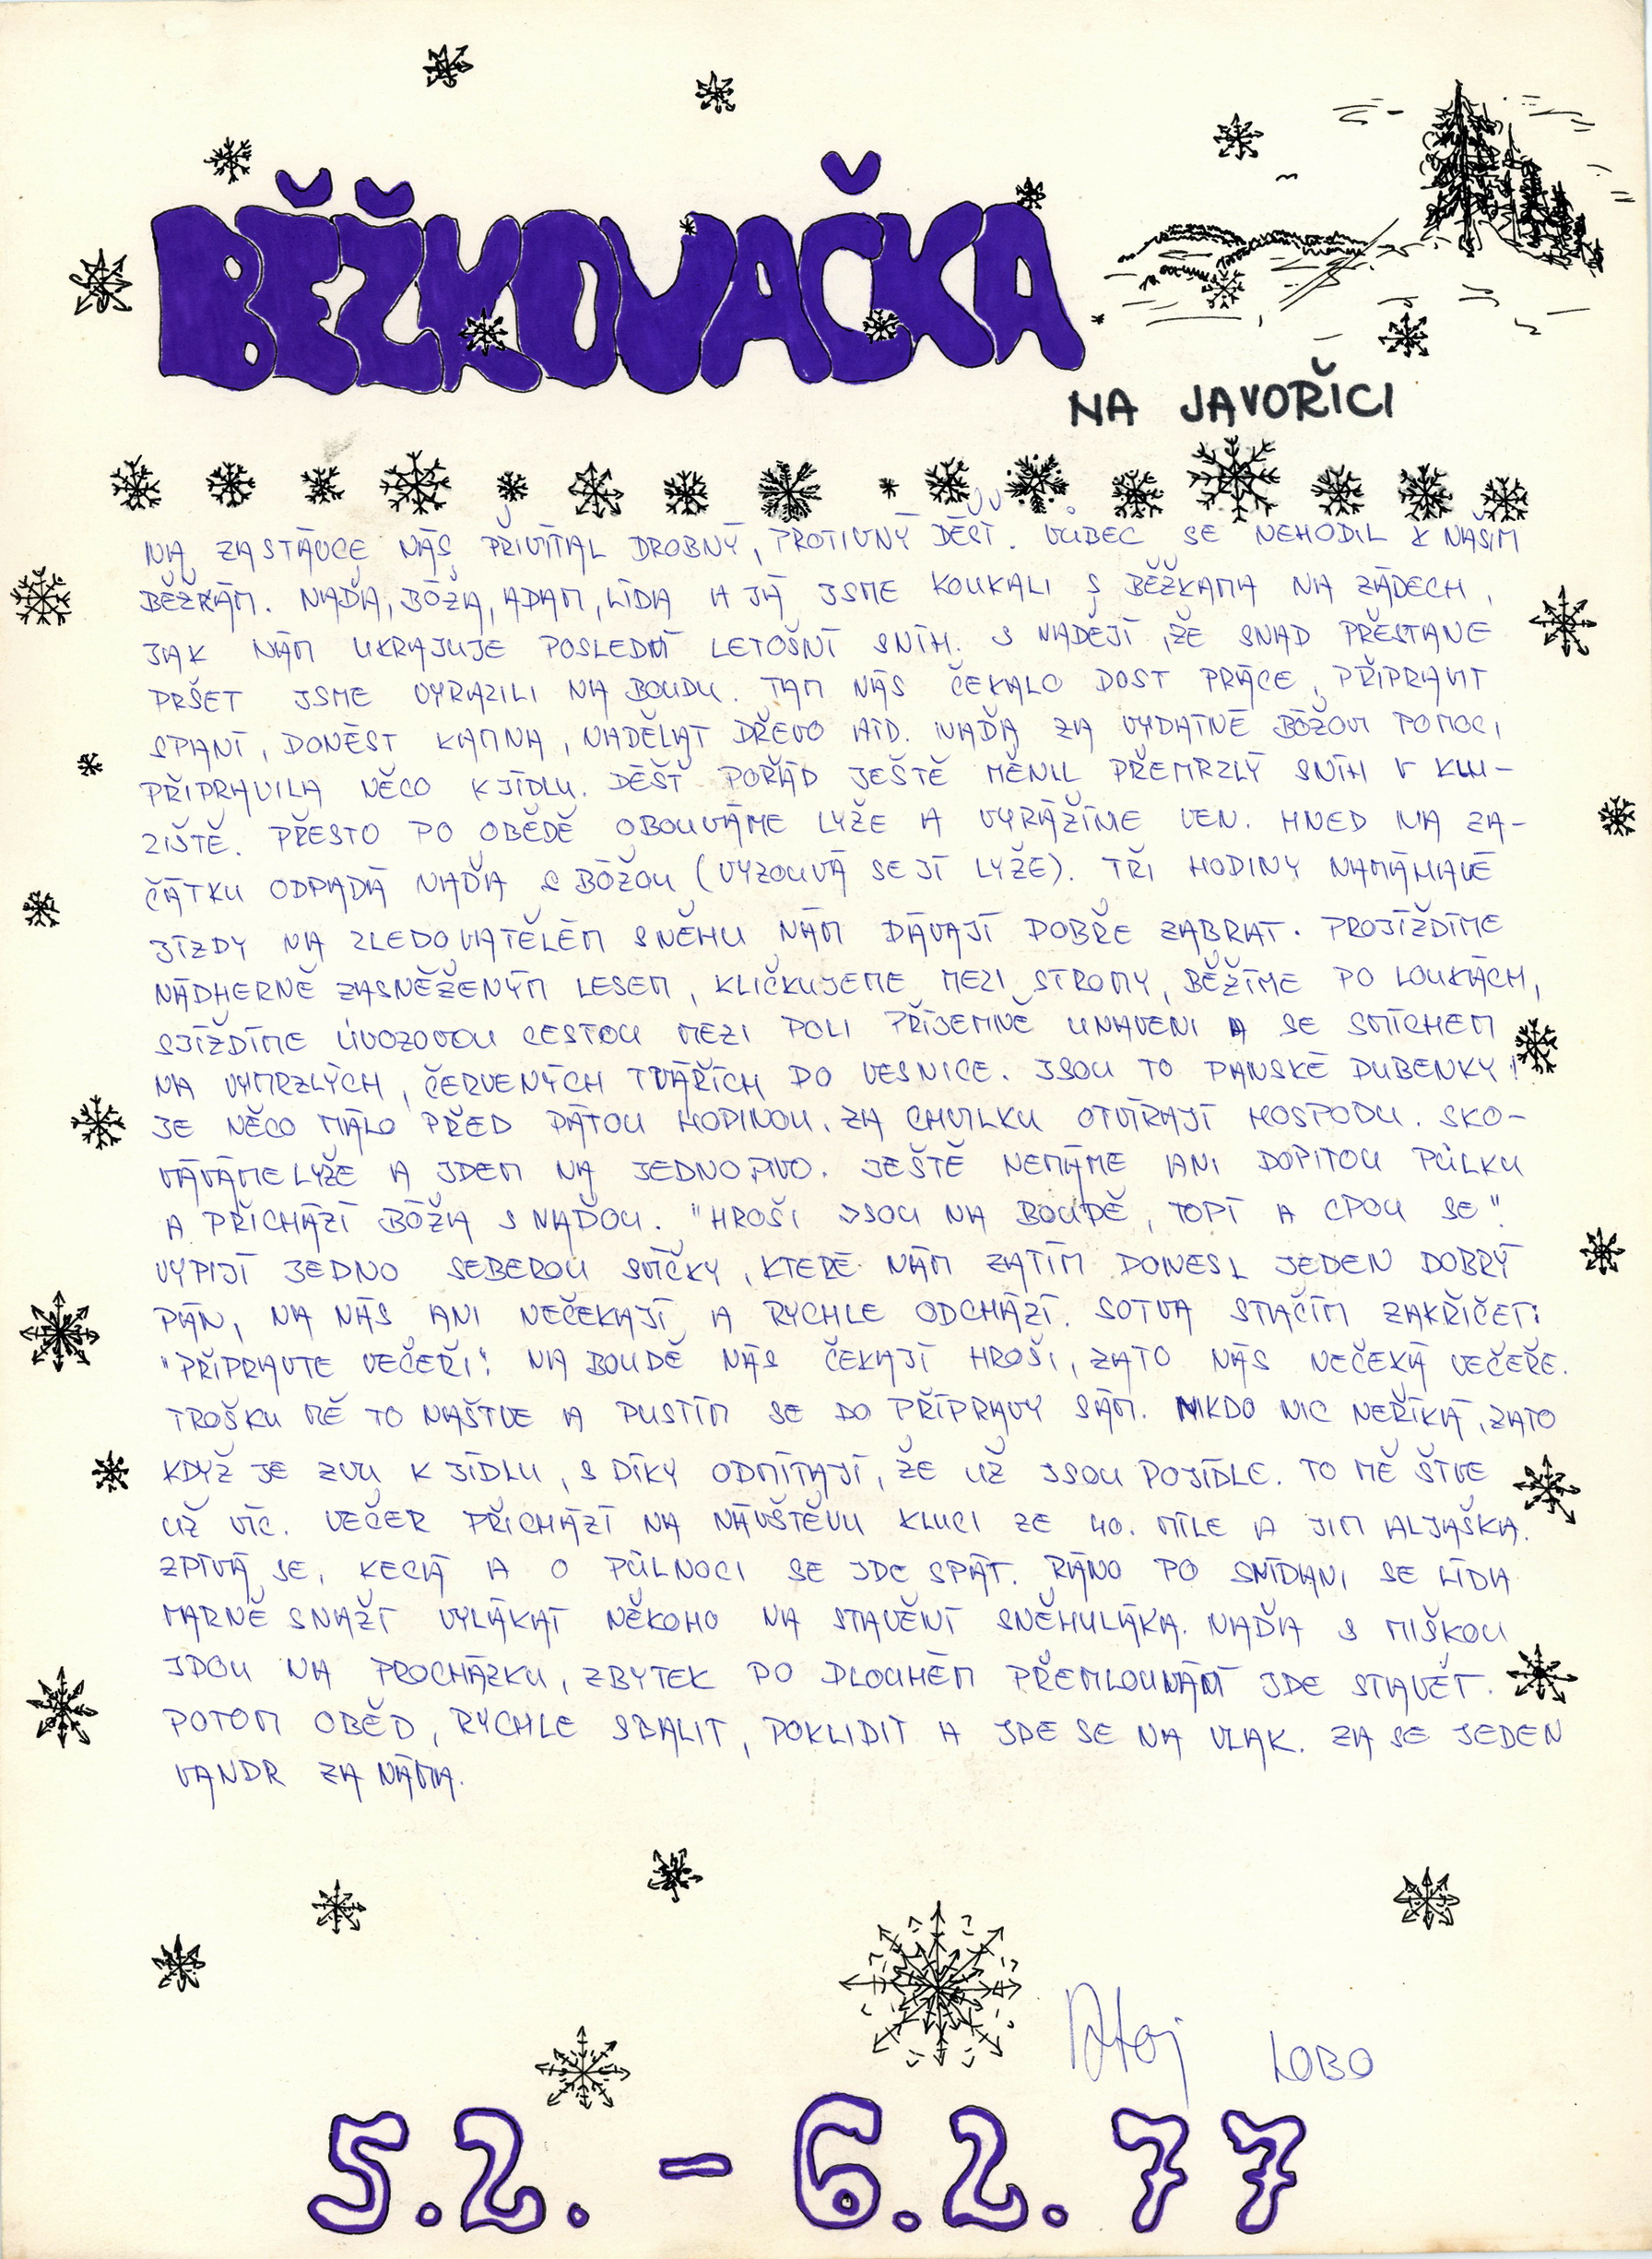 BĚŽKOVAČKA
NA JAVOŘICI
NA ZASTÁVCE NÁS PŘIVÍTAL DROBNÝ, PROTIVNÝ DÉŠŤ. VŮBEC SE NEHODIL K NAŠIM
BĚŽKÁM. NAĎA, BÓŽA, ADAM, LÍDA A JÁ JSME KOUKALI S BĚŽKAMA NA ZÁDECH,
JAK NÁM UKRAJUJE POSLEDNÍ LETOŠNÍ SNÍH. S NADĚJÍ, ŽE SNAD PŘESTANE
PRŠET JSME VYRAZILI NA BOUDU. TAM NÁS ČEKALO DOST PRÁCE, PŘIPRAVIT
SPANÍ, DONÉST KAMNA, NADĚLAT DŘEVO ATD. NAĎA ZA VYDATNÉ BÓŽOVI POMOCI
PŘIPRAVILA NĚCO K JÍDLU. DÉŠŤ POŘÁD JEŠTĚ MĚNIL PŘEMRZLÝ SNÍH V KLU-
ZIŠTĚ. PŘESTO PO OBĚDĚ OBOUVÁME LYŽE A VYRÁŽÍME VEN. HNED NA ZA-
ČÁTKU ODPADÁ NAĎA S BÓŽOU (VYZOUVÁ SE JÍ LYŽE). TŘI HODINY NAMÁHAVÉ
JÍZDY NA ZLEDOVATĚLÉM SNĚHU NÁM DÁVAJÍ DOBŘE ZABRAT. PROJÍŽDÍME
NÁDHERNĚ ZASNĚŽENÝM LESEM, KLIČKUJEME MEZI STROMY, BĚŽÍME PO LOUKÁCH,
SJÍŽDÍME ÚVOZOVOU CESTOU MEZI POLI PŘÍJEMNĚ UNAVENI A SE SMÍCHEM
NA VYMRZLÝCH, ČERVENÝCH TVÁŘÍCH DO VESNICE. JSOU TO PANSKÉ DUBENKY!
JE NĚCO MÁLO PŘED PÁTOU HODINOU. ZA CHVILKU OTVÍRAJÍ HOSPODU. SKO-
VÁVÁME LYŽE A JDEM NA JEDNO PIVO. JEŠTĚ NEMÁME ANI DOPITOU PŮLKU
A PŘICHÁZÍ BÓŽA S NAĎOU. "HROŠI JSOU NA BOUDĚ, TOPÍ A CPOU SE".
VYPIJÍ JEDNO SEBEROU SVÍČKY, KTERÉ NÁM ZATÍM DONESL JEDEN DOBRÝ
PÁN, NA NÁS ANI NEČEKAJÍ A RYCHLE ODCHÁZÍ. SOTVA STAČÍM ZAKŘIČET:
"PŘIPRAVTE VEČEŘI". NA BOUDĚ NÁS ČEKAJÍ HROŠI, ZATO NÁS NEČEKÁ VEČEŘE.
TROŠKU MĚ TO NAŠTVE A PUSTÍM SE DO PŘÍPRAVY SÁM. NIKDO NIC NEŘÍKÁ, ZATO
KDYŽ JE ZVU K JÍDLU, S DÍKY ODMÍTAJÍ, ŽE UŽ JSOU POJÍDLE. TO MĚ ŠTVE
UŽ VÍC. VEČER PŘICHÁZÍ NA NÁVŠTĚVU KLUCI ZE 40. MÍLE A JIM ALJAŠKA.
ZPÍVÁ SE, KECÁ A O PŮLNOCI SE JDE SPÁT. RÁNO PO SNÍDANI SE LÍDA
MARNĚ SNAŽÍ VYLÁKAT NĚKOHO NA STAVĚNÍ SNĚHULÁKA. NAĎA S MIŠKOU
JDOU NA PROCHÁZKU, ZBYTEK PO DLOUHÉM PŘEMLOUVÁNÍ JDE STAVĚT.
POTOM OBĚD, RYCHLE SBALIT, POKLIDIT A JDE SE NA VLAK. ZA SE JEDEN
VANDR ZA NÁMA.
Ahoj LOBO
5.2. - 6.2. 77